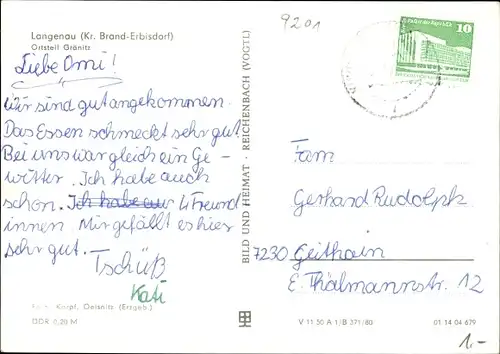 Langenau (Kr. Brand-Erbisdorf)
Ortsteil Gränitz
9201
10
Liebe Omi!
Wir sind gut angekommen.
Das Essen schmeckt sehr gut
Bei uns war gleich ein Ge-
witter. Ich habe auch
schon. Ich habe au 4 Freund
innen Mir gefällt es hier
sehr gut.
Tschüß
Kati
BILD UND HEIMAT · REICHENBACH (VOGTL)
Fam
Gerhard Rudolph
7230 Geithain
E. Thälmannstr. 12
Karpf, Oelsnitz (Erzgeb.)
DDR 0,20 M
V 11 50 A 1/B 371/80
01 14 04 679
1.-